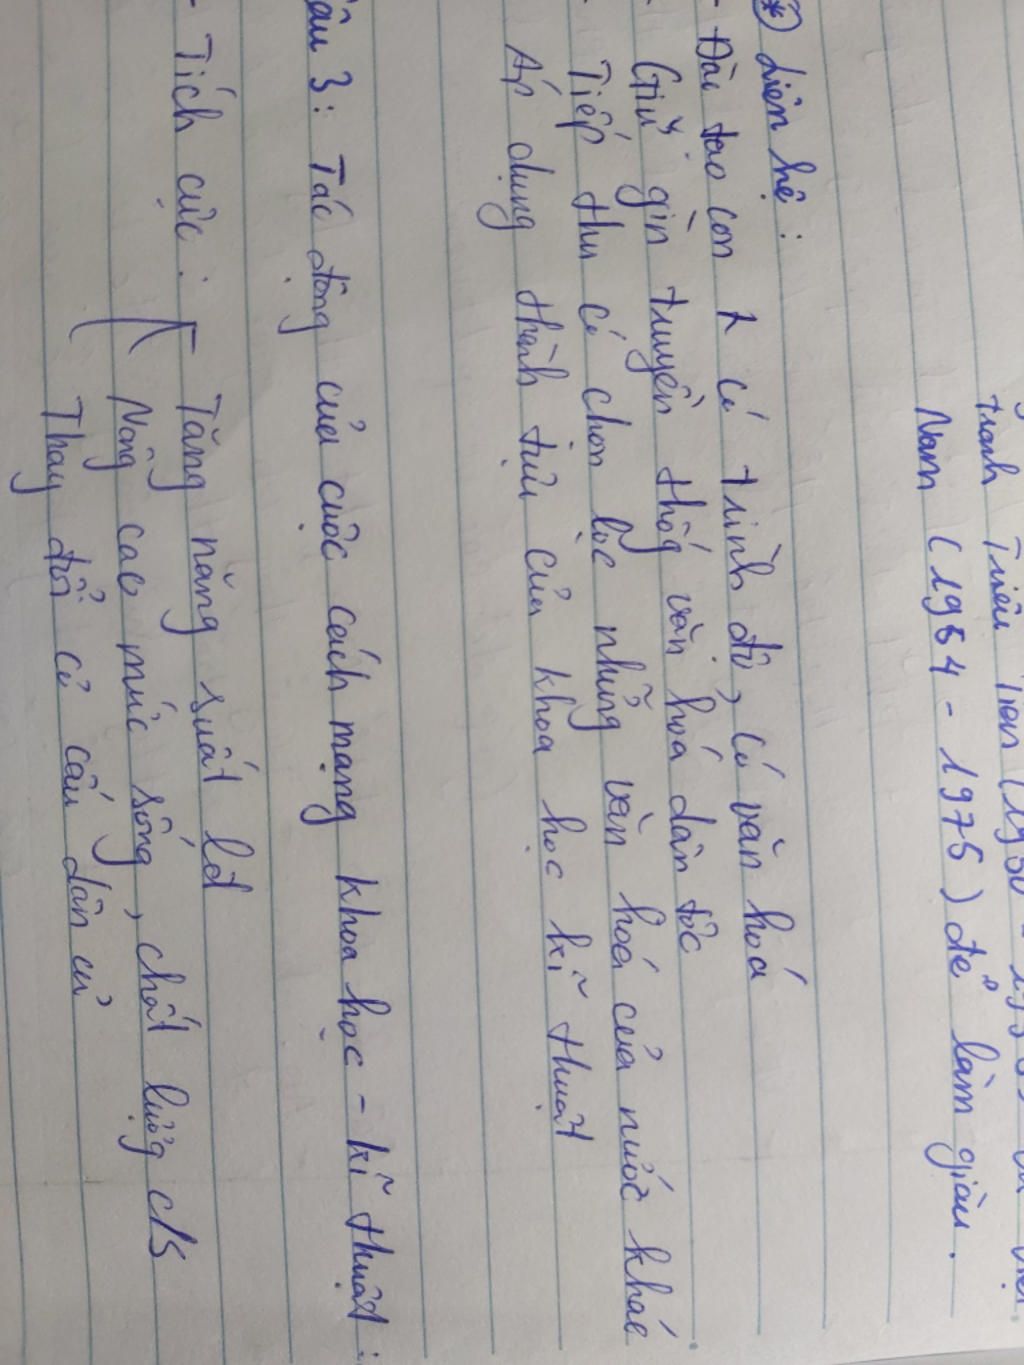 tranh Triều Tiên (1950 -
Nam (1954 - 1975) để làm giàu.
* Liên hệ :
- Đào tạo con n có trình độ, có văn hoá
- Giữ gìn truyền thốg văn hoá dân tộc
- Tiếp thu có chọn lọc nhữg văn hoá của nước khác
Áp dụng thành tựu của khoa học kĩ thuật
câu 3 : Tác độg của cuộc cách mạng khoa học - kĩ thuật :
- Tích cực : Tăng năng suất lđ
Nâng cao mức sống, chất lượg c/s
Thay đổi cơ cấu dân cư